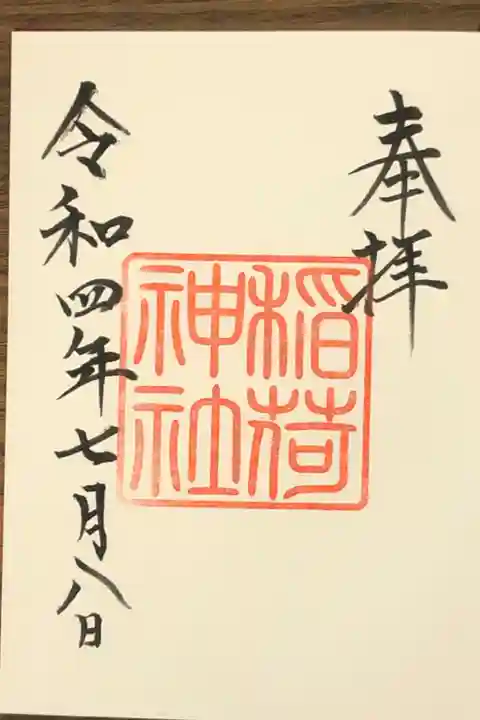 奉拝
稲荷
神社
令和四年七月八日